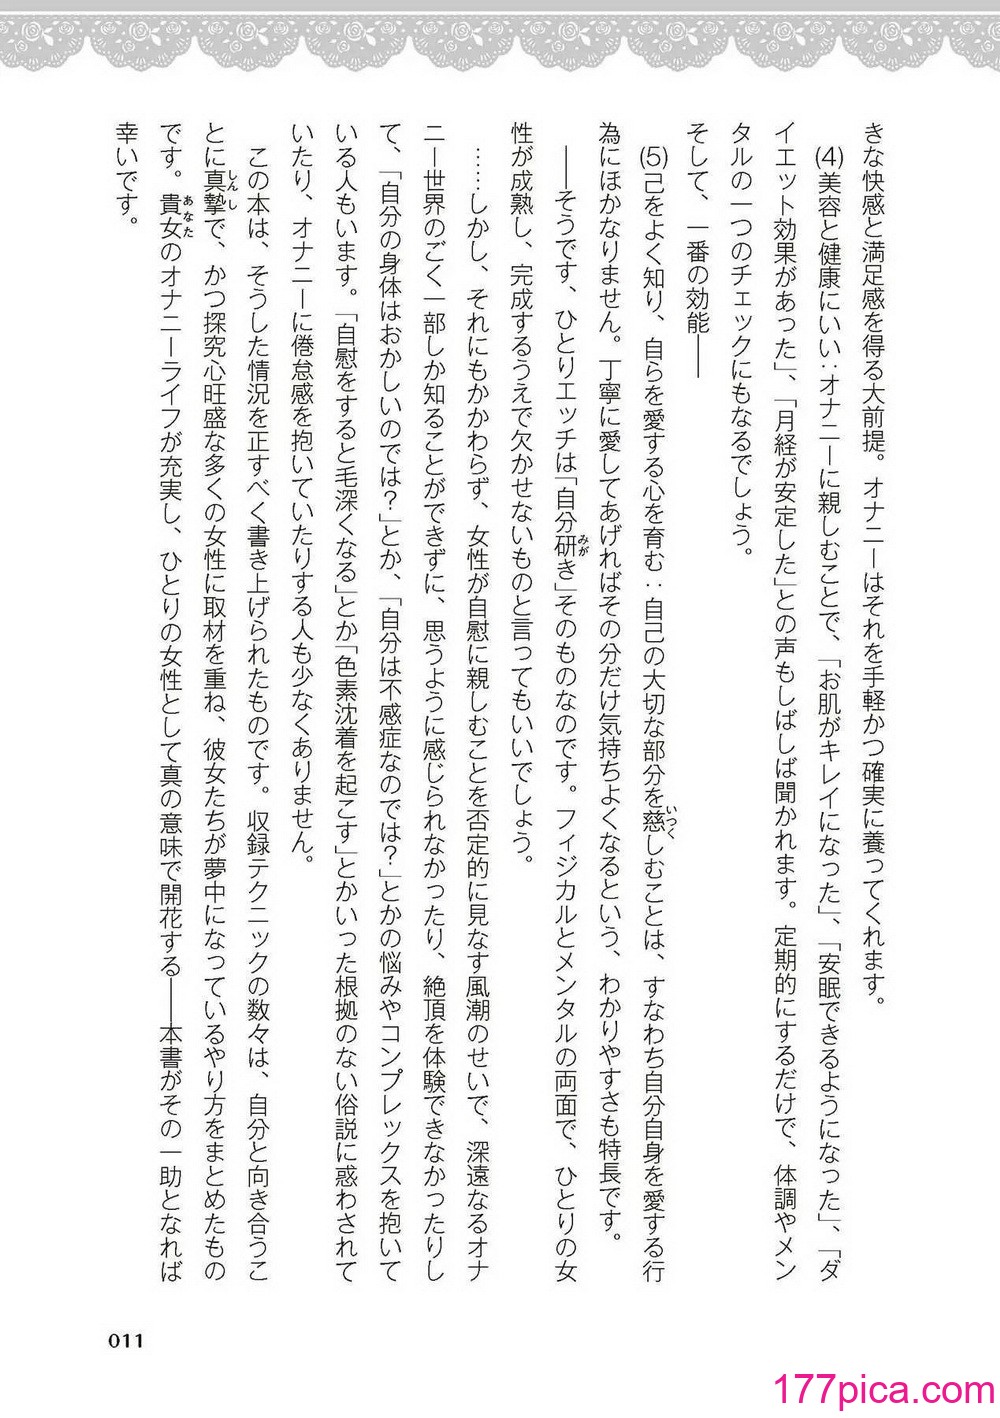 きな快感と満足感を得る大前提。オナニーはそれを手軽かつ確実に養ってくれます。
(4)美容と健康にいい：オナニーに親しむことで、「お肌がキレイになった」、「安眠できるようになった」、「ダ
イエット効果があった」、「月経が安定した」との声もしばしば聞かれます。定期的にするだけで、体調やメン
タルの一つのチェックにもなるでしょう。
そして、一番の効能――
(5)己をよく知り、自らを愛する心を育む：自己の大切な部分を慈しむことは、すなわち自分自身を愛する行
為にほかなりません。丁寧に愛してあげればその分だけ気持ちよくなるという、わかりやすさも特長です。
――そうです、ひとりエッチは「自分研き」そのものなのです。フィジカルとメンタルの両面で、ひとりの女
性が成熟し、完成するうえで欠かせないものと言ってもいいでしょう。
……しかし、それにもかかわらず、女性が自慰に親しむことを否定的に見なす風潮のせいで、深遠なるオナ
ニー世界のごく一部しか知ることができずに、思うように感じられなかったり、絶頂を体験できなかったりし
て、「自分の身体はおかしいのでは？」とか、「自分は不感症なのでは？」とかの悩みやコンプレックスを抱いて
いる人もいます。「自慰をすると毛深くなる」とか「色素沈着を起こす」とかいった根拠のない俗説に惑わされて
いたり、オナニーに倦怠感を抱いていたりする人も少なくありません。
この本は、そうした情況を正すべく書き上げられたものです。収録テクニックの数々は、自分と向き合うこ
とに真摯で、かつ探究心旺盛な多くの女性に取材を重ね、彼女たちが夢中になっているやり方をまとめたもの
です。貴女のオナニーライフが充実し、ひとりの女性として真の意味で開花する――本書がその一助となれば
幸いです。
011
177pica.com